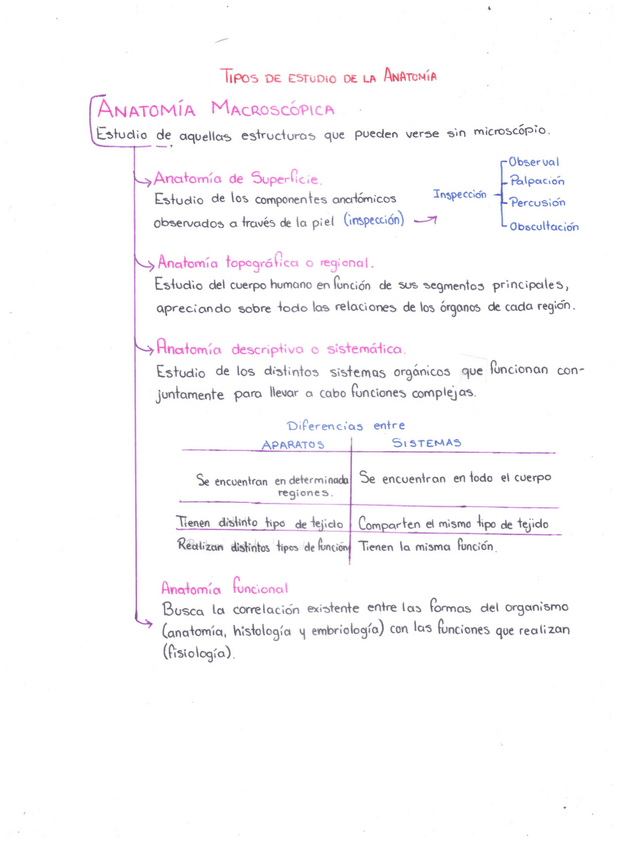 TIPOS DE ESTUDIO DE LA ANATOMÍA
ANATOMÍA MACROSCÓPICA
Estudio de aquellas estructuras que pueden verse sin microscópio.
Anatomía de Superficie.
Estudio de los componentes anatómicos
observados a través de la piel (inspección)
Inspección
Observal
Palpación
Percusión
Obscultación
Anatomía topográfica o regional.
Estudio del cuerpo humano en función de sus segmentos principales,
apreciando sobre todo las relaciones de los órganos de cada región.
Anatomía descriptiva o sistemática.
Estudio de los distintos sistemas orgánicos que funcionan con-
juntamente para llevar a cabo funciones complejas.
Diferencias entre
APARATOS SISTEMAS
Se encuentran en determinada Se encuentran en todo el cuerpo
regiones.
Tienen distinto tipo de tejido Comparten el mismo tipo de tejido
Realizan distintos tipos de función Tienen la misma función.
Anatomía funcional
Busca la correlación existente entre las formas del organismo
(anatomía, histología y embriología) con las funciones que realizan
(fisiología).